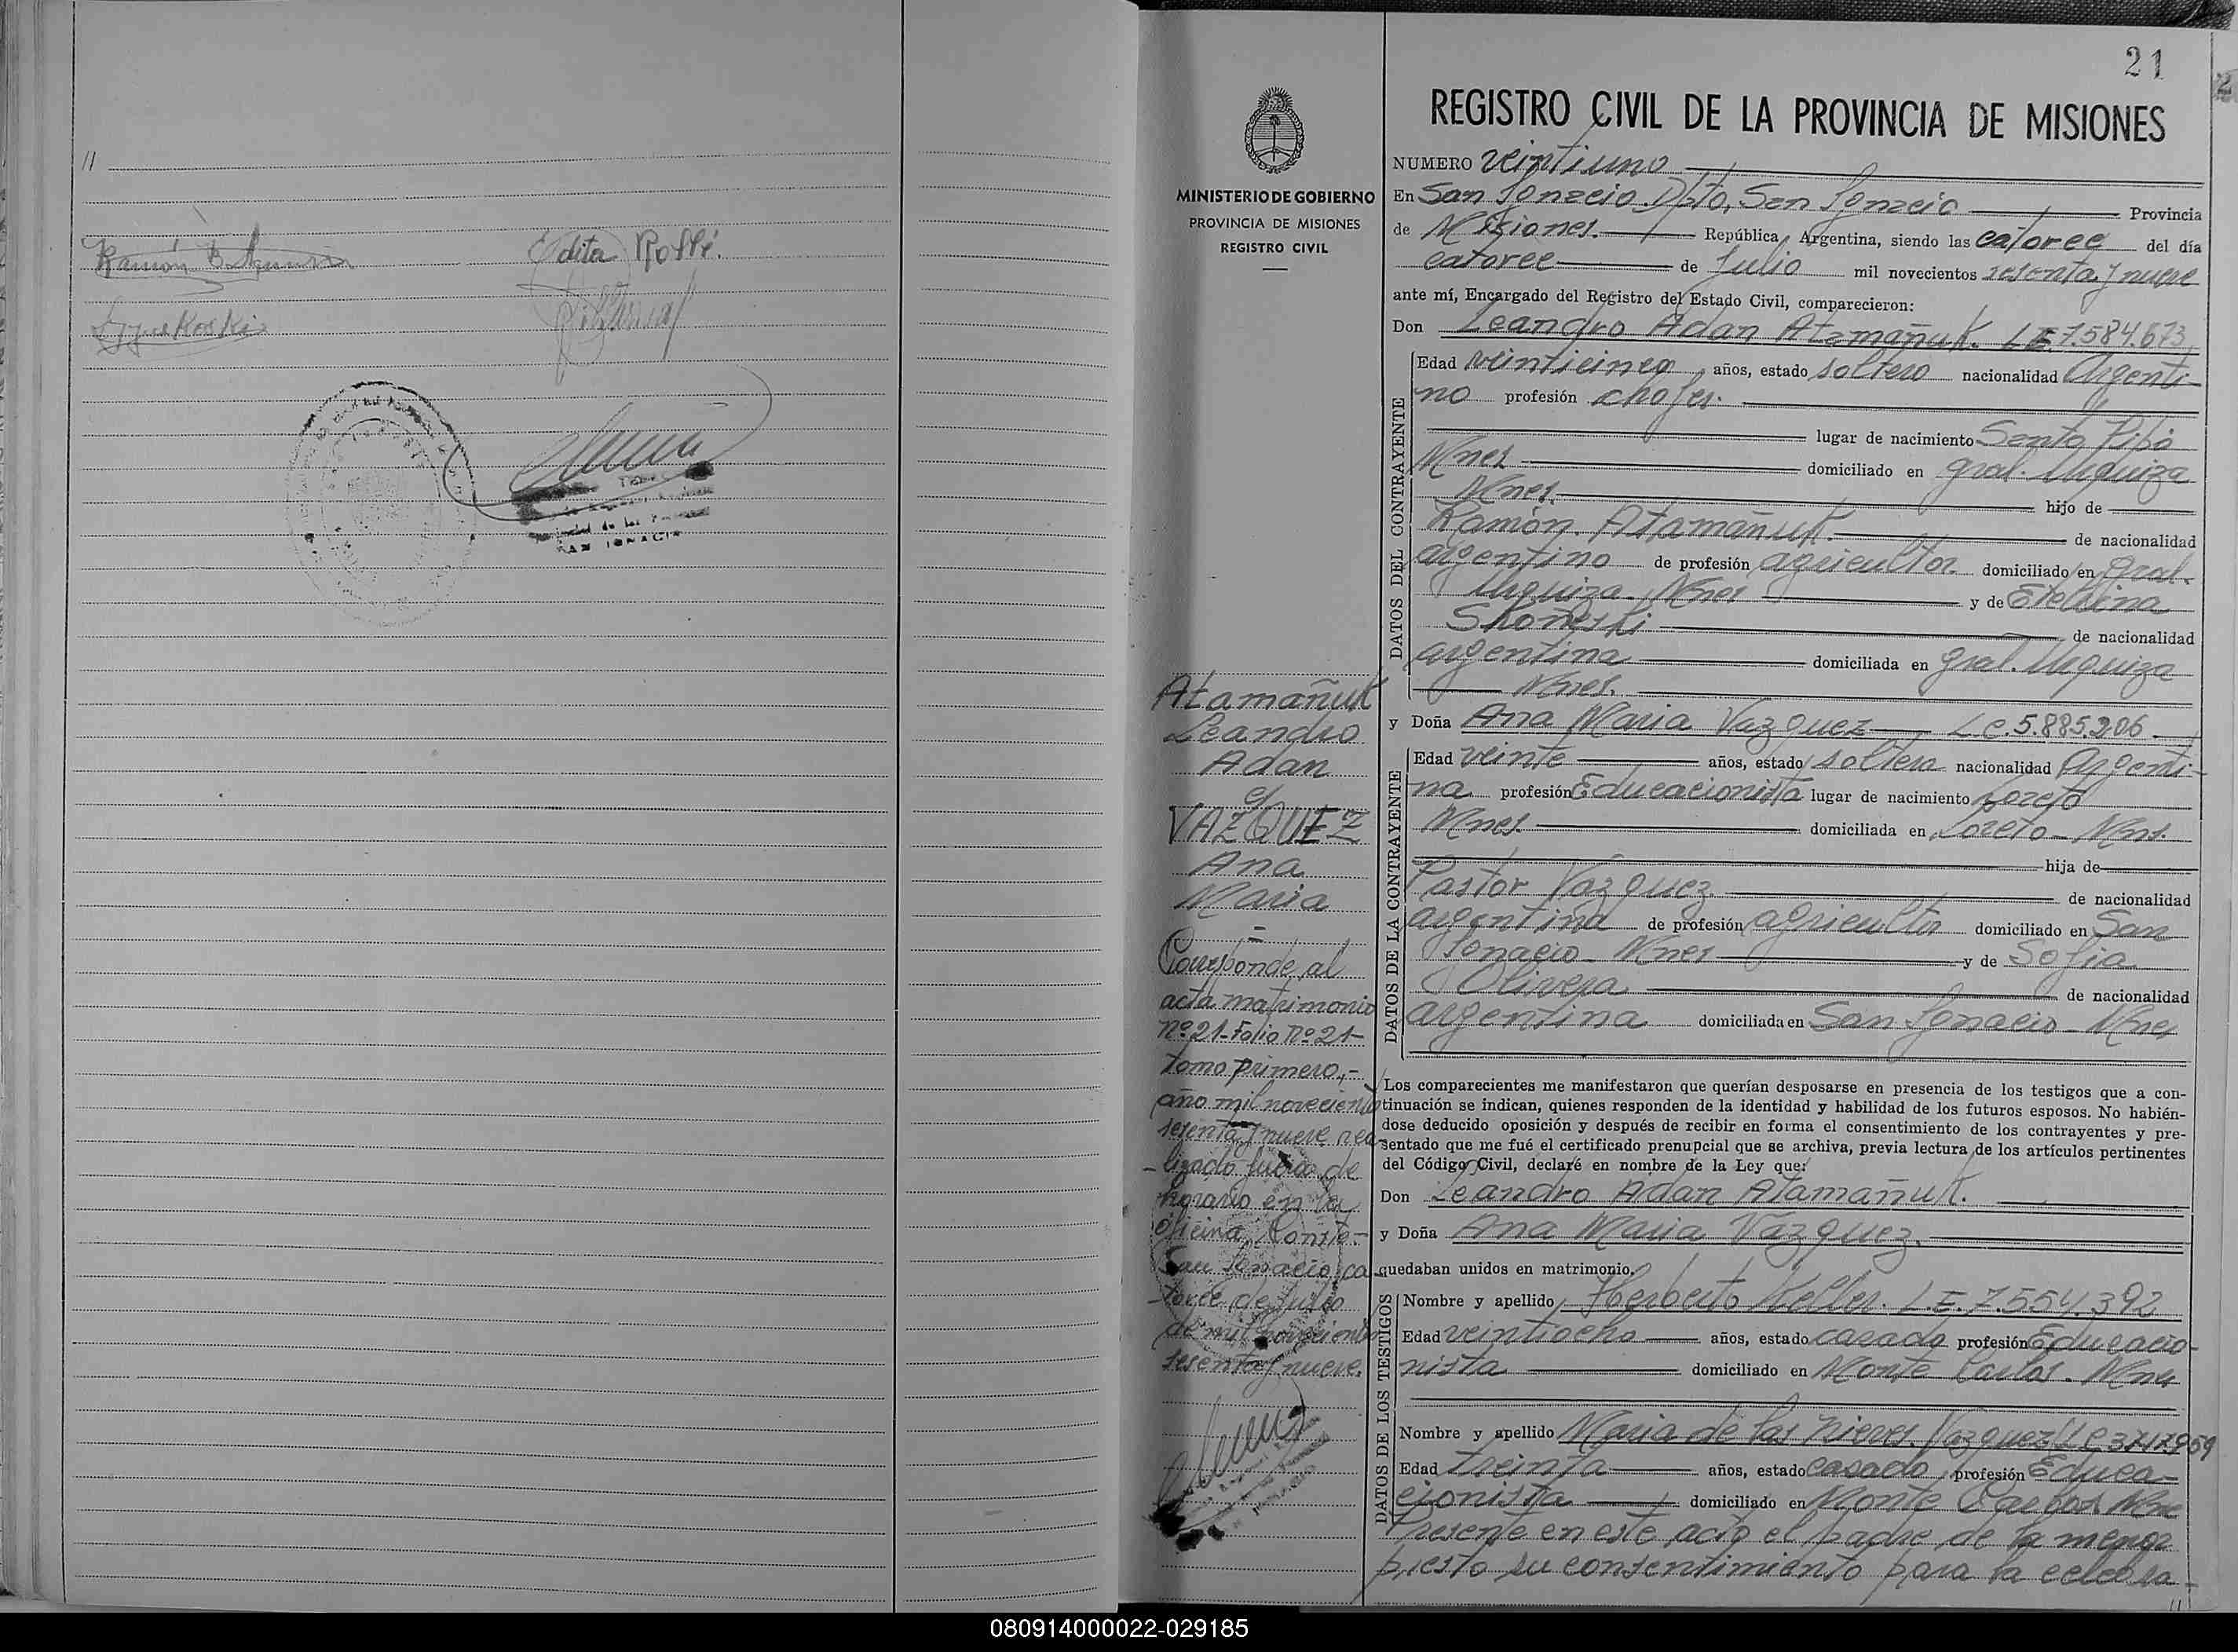 //
Ramón B.
Edita Rossé.
SAN IGNACIO
21
REGISTRO CIVIL DE LA PROVINCIA DE MISIONES
MINISTERIO DE GOBIERNO
PROVINCIA DE MISIONES
REGISTRO CIVIL
NUMERO veintiuno
En San Ignacio. Dpto, San Ignacio Provincia
de Misiones. República Argentina, siendo las catorce del día
catorce de Julio mil novecientos sesenta y nueve
ante mí, Encargado del Registro del Estado Civil, comparecieron:
Don Leandro Adan Atamañuk. L.E. 7.584.673
DATOS DEL CONTRAYENTE
Edad veinticinco, años, estado soltero nacionalidad Argenti-
no profesión chofer.
lugar de nacimiento Santo Pipó
Mnes domiciliado en Gral. Urquiza
Mnes. hijo de
Ramón Atamañuk. de nacionalidad
argentino de profesión agricultor domiciliado en Gral.
Urquiza. Mnes y de Etelvina
Skoñeski de nacionalidad
argentina domiciliada en Gral. Urquiza
Mnes.
y Doña Ana Maria Vazquez L.C. 5.885.206.
DATOS DE LA CONTRAYENTE
Edad veinte años, estado soltera nacionalidad Argenti-
na profesión Educacionista lugar de nacimiento Loreto
Mnes. domiciliada en Loreto - Mns.
hija de
Pastor Vázquez. de nacionalidad
argentina de profesión agricultor domiciliado en San
Ignacio - Mnes y de Sofia
Olivera de nacionalidad
argentina domiciliada en San Ignacio - Mnes
Los comparecientes me manifestaron que querían desposarse en presencia de los testigos que a con-
tinuación se indican, quienes responden de la identidad y habilidad de los futuros esposos. No habién-
dose deducido oposición y después de recibir en forma el consentimiento de los contrayentes y pre-
sentado que me fué el certificado prenupcial que se archiva, previa lectura de los artículos pertinentes
del Código Civil, declaré en nombre de la Ley que:
Don Leandro Adan Atamañuk.
y Doña Ana Maria Vázquez.
quedaban unidos en matrimonio.
DATOS DE LOS TESTIGOS
Nombre y apellido Herberto Keller. L.E. 7.554.392
Edad veintiocho años, estado casado profesión Educacio-
nista domiciliado en Monte Carlos. Mnes
Nombre y apellido Maria de las Nieves Vazquez L.C.
Edad treinta años, estado casado, profesión Educa-
cionista domiciliado en Monte Carlos. Mne
Presente en este acto el padre de la menor
presto su consentimiento para la celebra-
//
Atamañuk
Leandro
Adan
c/
VAZQUEZ
Ana
Maria
=
Corresponde al
acta matrimonio
Nº 21-Folio Nº 21-
tomo primero,-
año mil novecientos
sesenta y nueve rea
-lizado fuera de
horario en la
oficina, Conste.-
San Ignacio, ca-
-torce de Julio
de mil novecientos
sesenta y nueve.
080914000022-029185